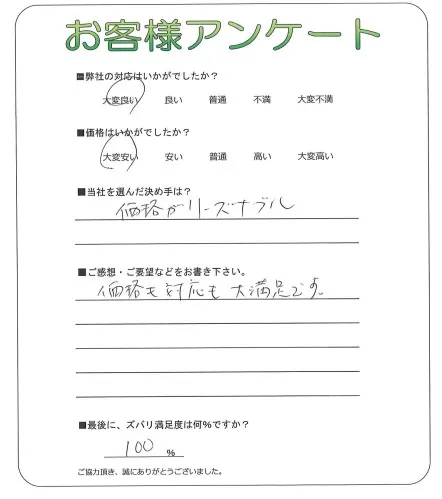 お客様アンケート
■弊社の対応はいかがでしたか？
大変良い 良い 普通 不満 大変不満
■価格はいかがでしたか？
大変安い 安い 普通 高い 大変高い
■当社を選んだ決め手は？
価格がリーズナブル
■ご感想・ご要望などをお書き下さい。
価格も対応も大満足です。
■最後に、ズバリ満足度は何％ですか？
100 ％
ご協力頂き、誠にありがとうございました。